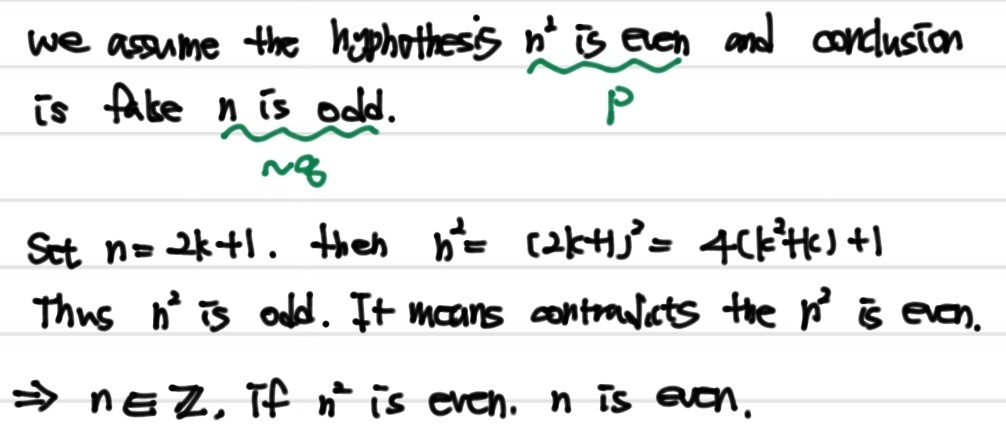 we assume the hyphothesis n² is even and conclusion
p
is false n is odd.
~q
Set n = 2k+1. then n² = (2k+1)² = 4(k²+k)+1
Thus n² is odd. It means contradicts the n² is even.
⇒ n ∈ ℤ, if n² is even. n is even.